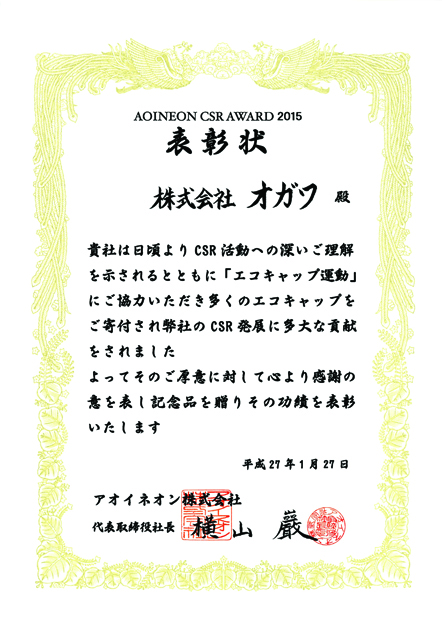 AOINEON CSR AWARD 2015
表彰状
株式会社 オガワ 殿
貴社は日頃より CSR 活動への深いご理解
を示されるとともに「エコキャップ運動」
にご協力いただき多くのエコキャップを
ご寄付され弊社の CSR 発展に多大な貢献
をされました
よってそのご厚意に対して心より感謝の
意を表し記念品を贈りその功績を表彰
いたします
平成27年1月27日
アオイネオン株式会社
代表取締役社長 横山 巖